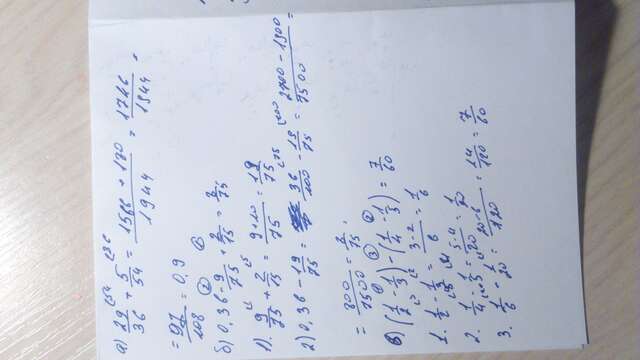 а) 29/36 + 5/54 = 1566 + 180/1944 = 1746/1944 =
= 97/108 = 0,9
б) 0,36 - 9/75 + 2/15 = 8/75
1). 9/75 + 2/15 = 9+10/75 = 19/75
2) 0,36 - 19/75 = 36/100 - 19/75 = 2700 - 1900/7500 =
= 800/7500 = 8/75.
в) (1/2 - 1/3) - (1/4 - 1/5) = 7/60
1. 1/2 - 1/3 = 3-2/6 = 1/6
2. 1/4 - 1/5 = 5-4/20 = 1/20
3. 1/6 - 1/20 = 20-6/120 = 14/120 = 7/60